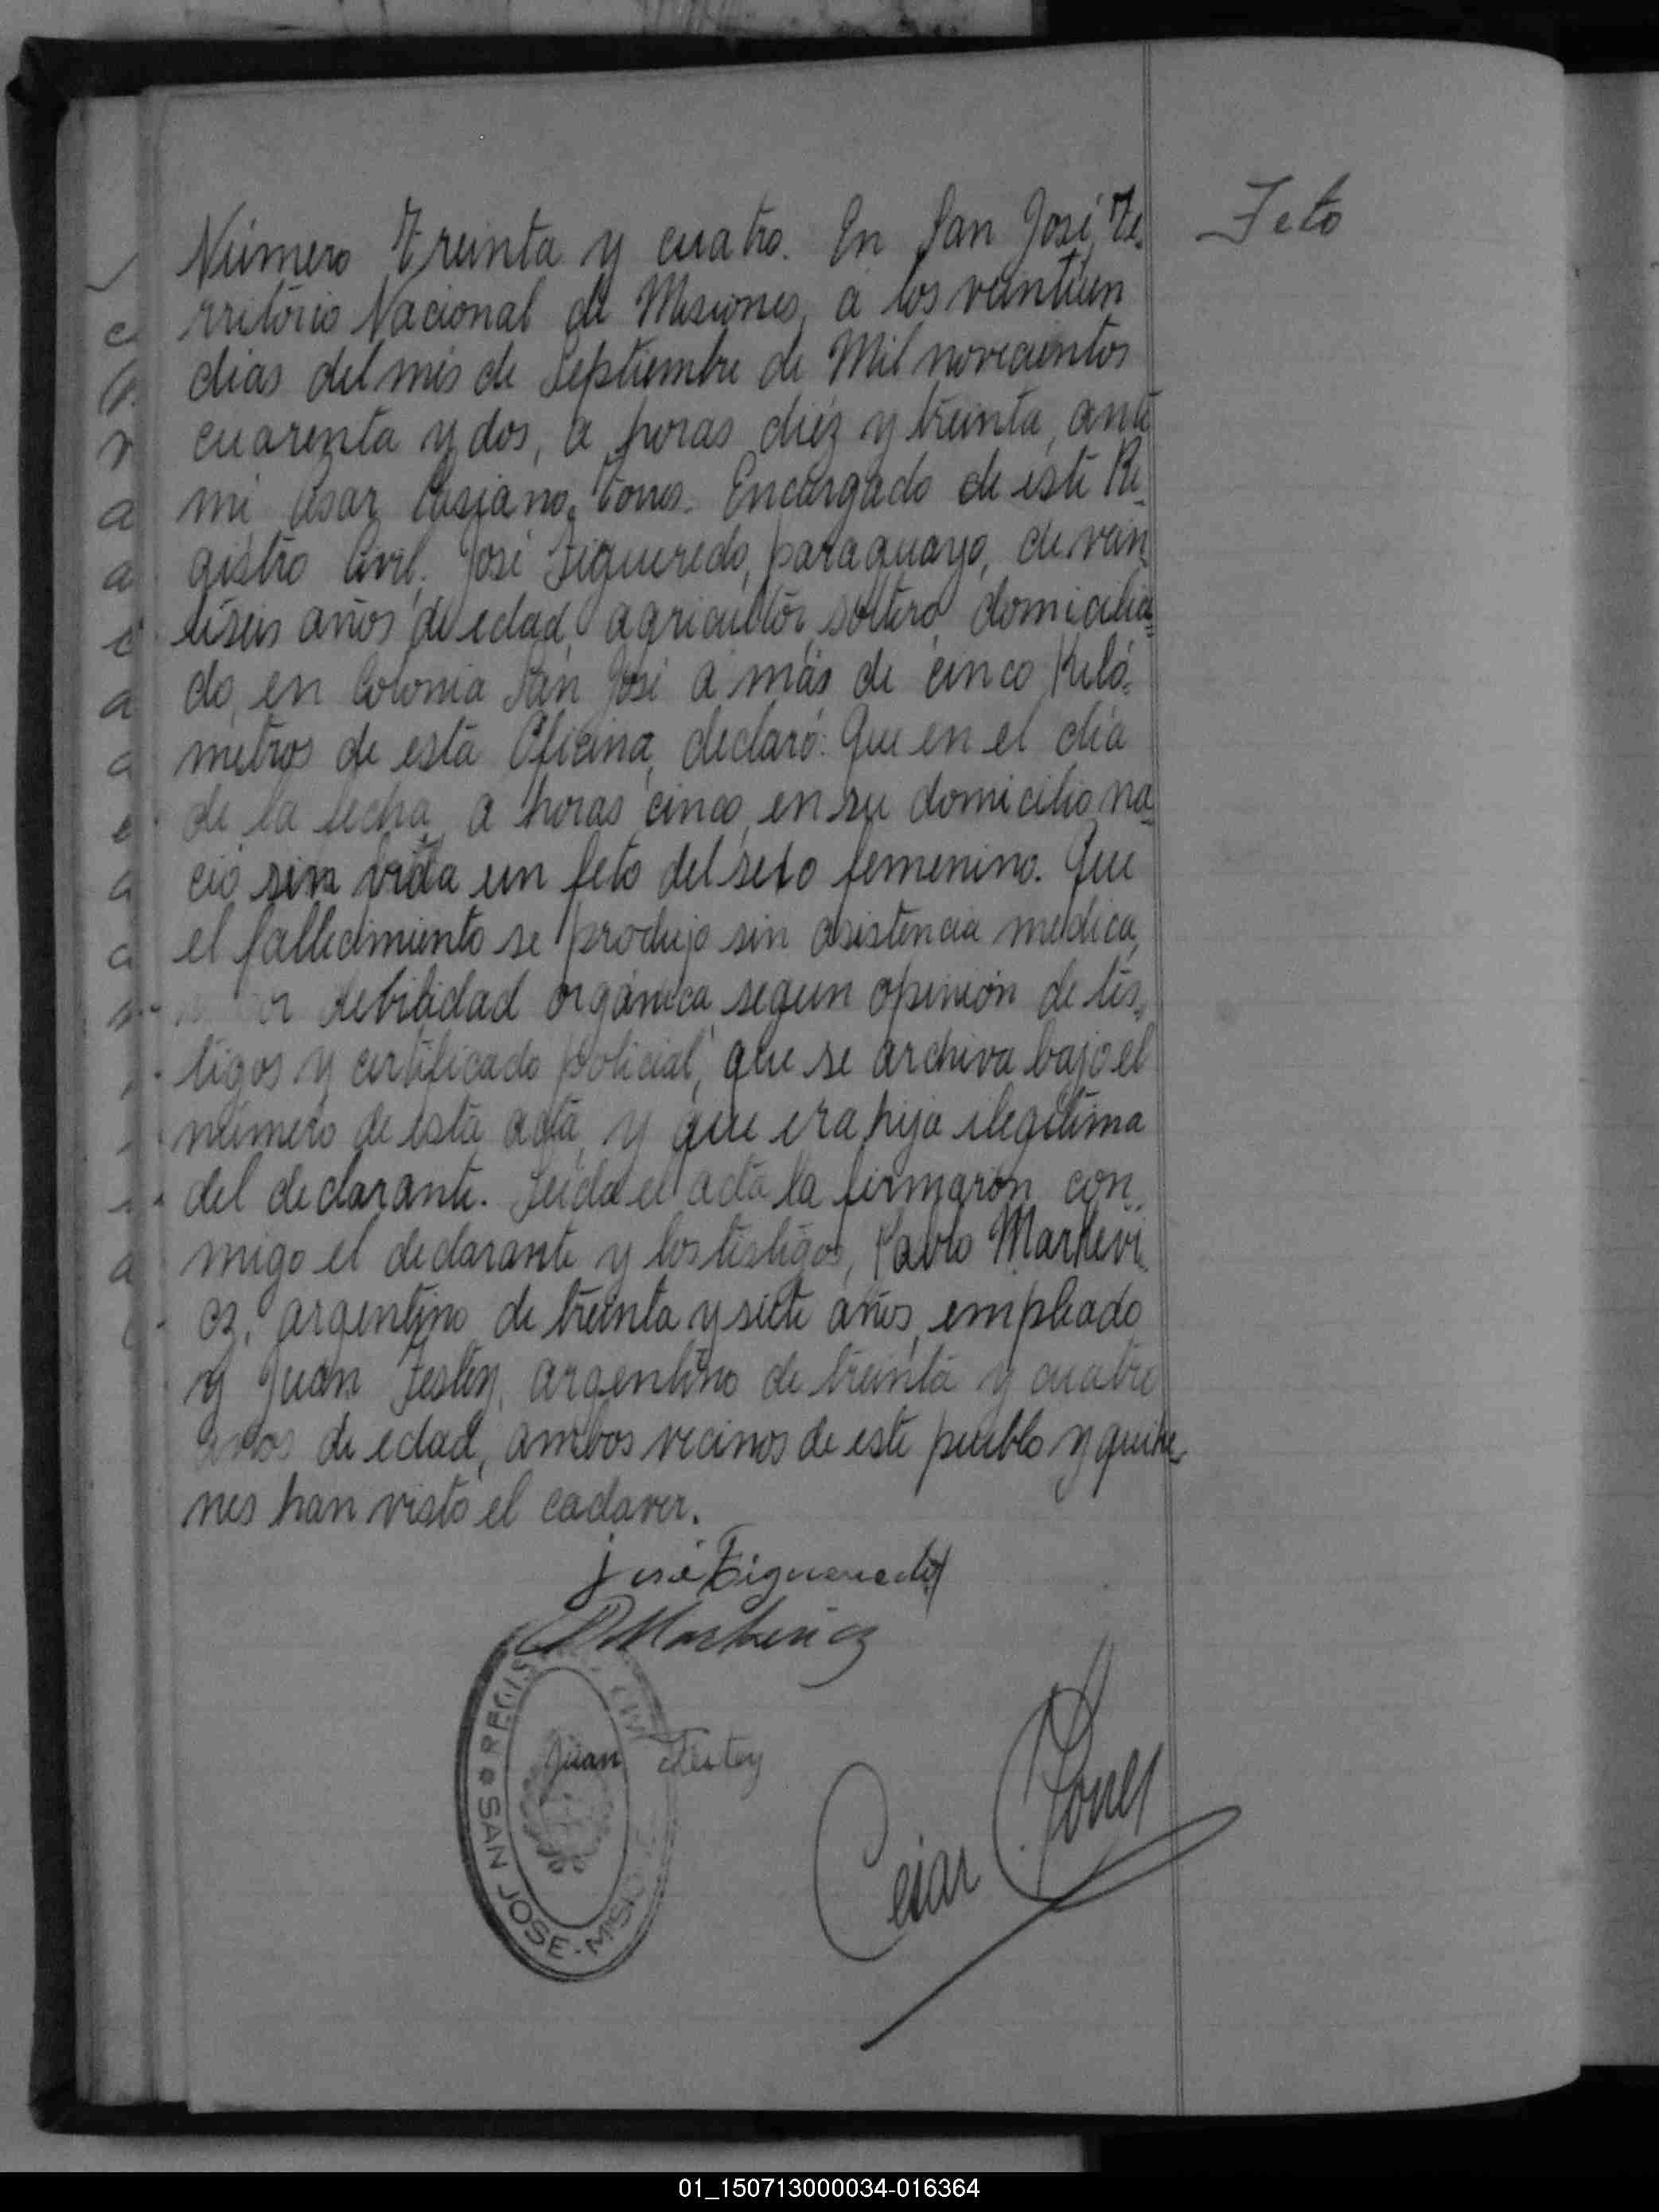 Feto
Número Treinta y cuatro. En San José, Te-
rritório Nacional de Misiones, a los veintiun
dias del mes de Septiembre de Mil novecientos
cuarenta y dos, a horas diéz y treinta, ante
mi Cesar Casiano Torres. Encargado de este Re-
gistro Civil, José Figueredo, paraguayo, de vein
tiseis años de edad, agricultor, soltero, domicilia=
do, en Colonia San José a más de cinco Kiló=
metros de esta Oficina, declaró: Que en el día
de la fecha, a horas cinco, en su domicilio, na=
ció sin vida un feto del sexo femenino. Que
el fallecimiento se produjo sin asistencia medica,
debilidad orgánica, segun opinión de tes=
tigos y certificado policial, que se archiva bajo el
número de esta acta, y que era hija ilegítima
del declarante. Leida el acta la firmarón con
migo el declarante y los testigos, Pablo Markevi
cz, argentino de treinta y siete años, empleado
y Juan Festey, argentino de treinta y cuatro
años de edad, ambos vecinos de este pueblo y quie
nes han visto el cadaver.
José Figueredo
P Markevicz
Juan Festey
Cesar C. Torres
REGIS CIVIL
SAN JOSE - MISIO
01_150713000034-016364